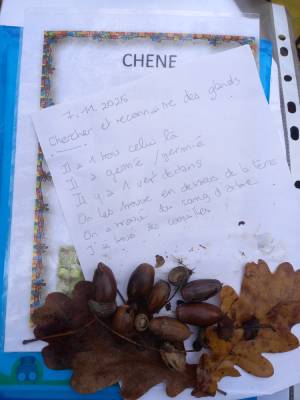 CHENE
7.11.2025
Chercher et reconnaitre des glands
Il a 1 trou celui là
Il a germé / germié
Il y a 1 ver dedans
On les trouve en dessous de la terre
On a mangé du camp d'arbre
J'ai des coquilles